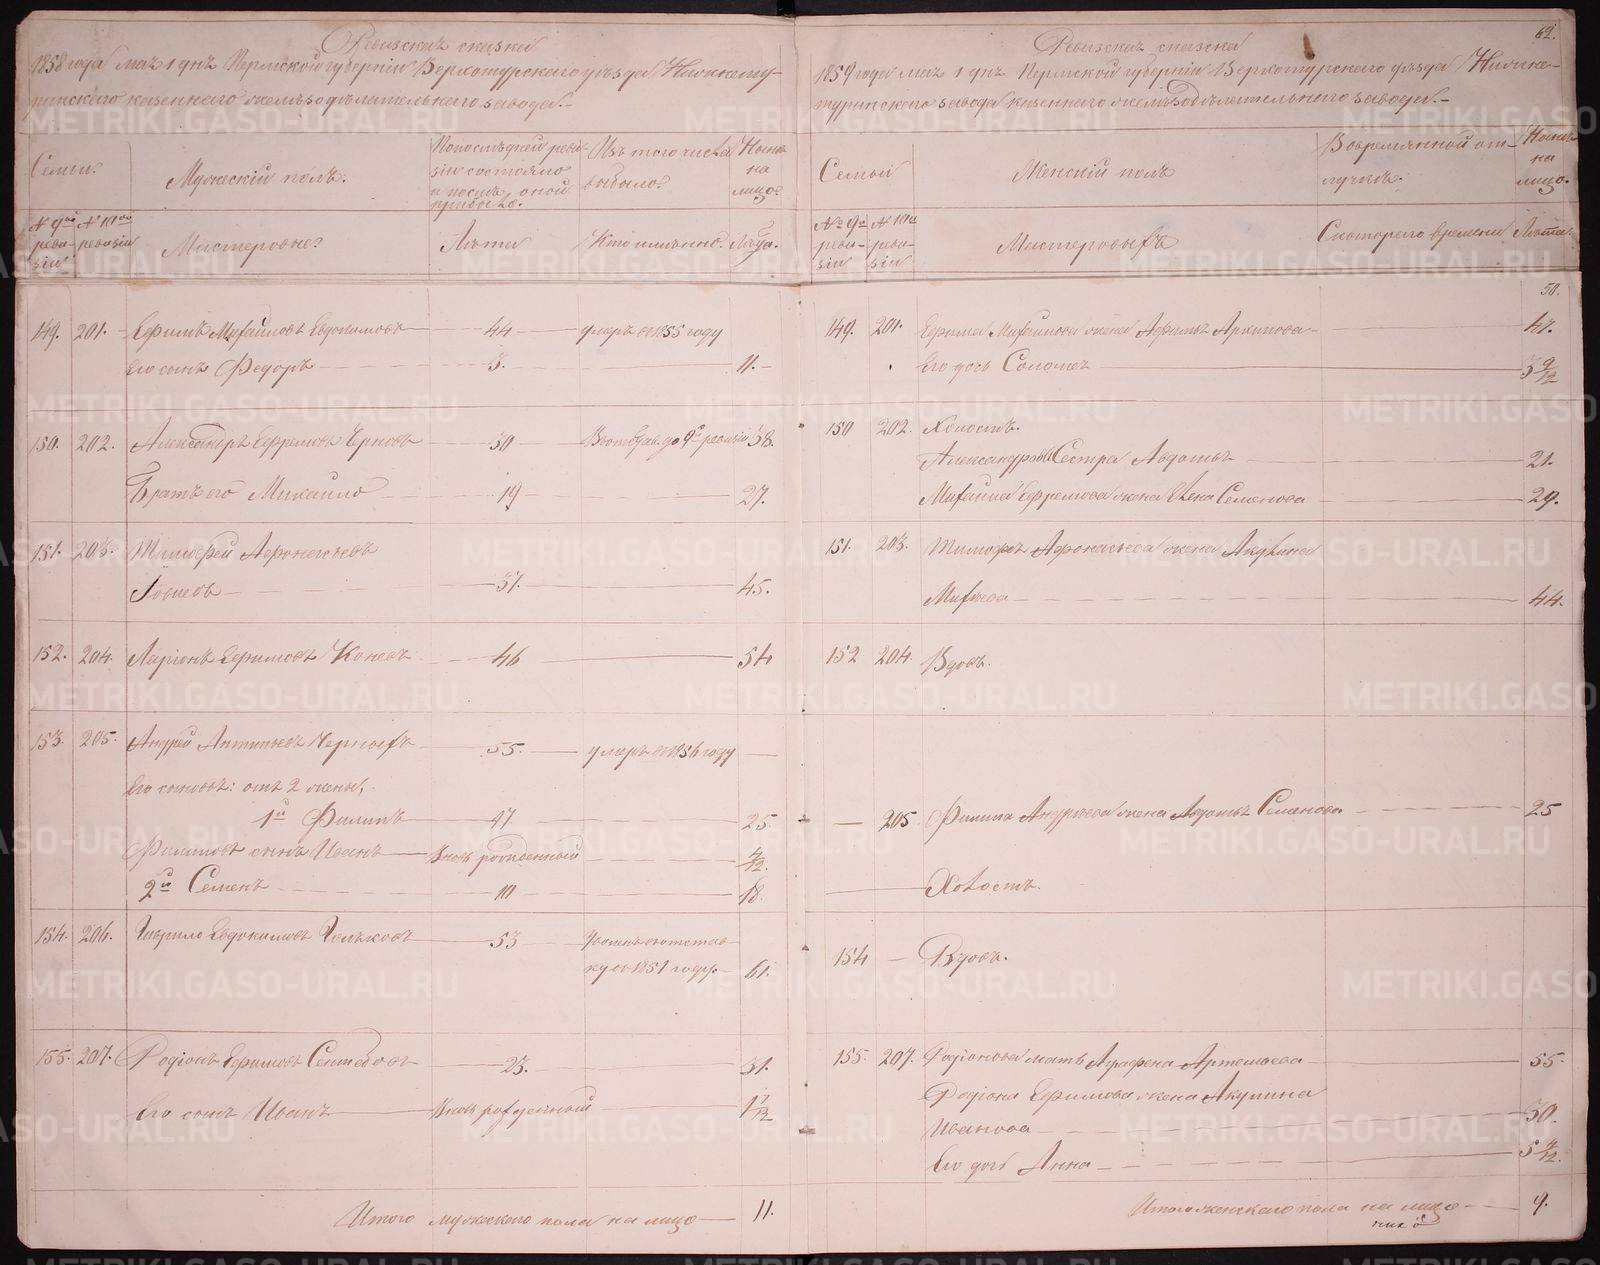 Ревизская сказка
1858 года мая 1 дня Пермской губернiи Верхотурскаго уезда Нижнету-
ринскаго казеннаго железоделательнаго завода.-
Семьи.
Мужескiй полъ.
По последней реви-
зiи состояло
и после оной
прибыло.
Изъ того числа
выбыло.
Ныне
на
лицо.
№ 9ой
реви-
зiи
№ 10ой
ревизiи
Мастеровые
Лета
Кто именно.
Лета.
149. 201. Ефимъ Михайловъ Евдокимовъ 44 умеръ въ 1855 году
Его сынъ Федоръ 3. 11.
150. 202. Александръ Ефремовъ Черновъ 50 до 9й ревизiи 58.
Братъ его Михайло 19 27.
151. 203. Тимофей Афонасьевъ
37. 45.
152. 204. Ларiонъ Ефимовъ Коневъ 46 54
153. 205. Андрей Антипьевъ Черныхъ 55. умеръ въ 1856 году
Его сыновья: отъ 2 жены,
1й Филипъ 17 25.
Филиповъ сынъ Иванъ Вновь рожденный 4/12.
2й Семенъ 10 18.
154. 206. Гаврило Евдокимовъ 53 Уволенъ въ отстав-
ку въ 1851 году. 61.
155. 207. Родiонъ Ефимовъ 23. 31.
Его сынъ Иванъ Вновь рожденный 1 7/12
Итого мужескаго пола на лицо 11.
62.
Ревизская сказка
1859 года мая 1 дня Пермской губернiи Верхотурскаго уезда Нижне-
туринскаго завода казеннаго железоделательнаго завода.-
Семьи
Женскiй полъ
Во временной от-
лучке.
Ныне
на
лицо.
№ 9й
реви-
зiи
№ 10й
реви-
зiи
Мастеровыхъ
Съ котораго времени
Лета.
50.
149. 201. Ефима Михайлова жена Афимья Архипова 47.
Его дочь Соломея 3 9/12
150 202. Холостъ.
Александрова Сестра Авдотья 21.
Михаила Ефремова жена Елена Семенова 29.
151. 203. Тимофея Афонасьева жена Акулина
Михеева 44.
152 204. Вдовъ.
205 Филипа Андреева жена Авдотья Семенова 25
Холостъ.
154 Вдовъ.
155. 207. Родiонова мать Аграфена Артемьева 55.
Родiона Ефимова жена Акулина
Иванова 30.
Его дочь Анна
Итого женскаго пола на лицо 9.